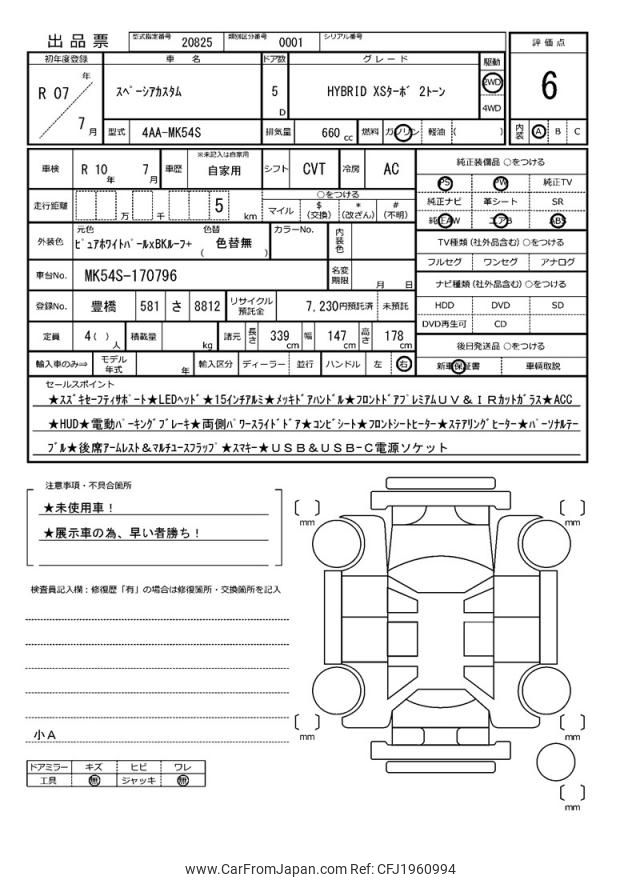 出品票
型式指定番号 20825 類別区分番号 0001 シリアル番号
評価点
初年度登録 車名 ドア数 グレード 駆動
R 07 年 7 月
スペーシアカスタム 5 D HYBRID XSターボ 2トーン
2WD
4WD
6
型式 4AA-MK54S 排気量 660 cc 燃料 ガソリン 軽油 ( )
内装 A B C
車検 R 10 年 7 月 車歴 ※未記入は自家用 自家用 シフト CVT 冷房 AC
純正装備品 ○をつける
PS PW 純正TV
純正ナビ 革シート SR
純正AW エアB ABS
走行距離 万 千 5 km
○をつける
マイル $(交換) *(改ざん) #(不明)
外装色 元色 ピュアホワイトパールxBKルーフ+ 色替 ( 色替無 ) カラーNo. 内装色
TV種類 (社外品含む) ○をつける
フルセグ ワンセグ アナログ
車台No. MK54S-170796 名変期限 月 日
ナビ種類 (社外品含む) ○をつける
HDD DVD SD
DVD再生可 CD
登録No. 豊橋 581 さ 8812 リサイクル預託金 7,230円預託済 未預託
定員 4( ) 人 積載量 kg 諸元 長さ 339 cm 幅 147 cm 高さ 178 cm
後日発送品 ○をつける
新車保証書 車輌取説
輸入車のみ⇒ モデル年式 年 輸入区分 ディーラー 並行 ハンドル 左 右
セールスポイント
★スズキセーフティサポート★LEDヘッド★15インチアルミ★メッキドアハンドル★フロントドアプレミアムUV&IRカットガラス★ACC
★HUD★電動パーキングブレーキ★両側パワースライドドア★コンビシート★フロントシートヒーター★ステアリングヒーター★パーソナルテー
ブル★後席アームレスト&マルチユースフラップ★スマキー★USB&USB-C電源ソケット
注意事項・不具合箇所
★未使用車！
★展示車の為、早い者勝ち！
検査員記入欄：修復歴「有」の場合は修復箇所・交換箇所を記入
小A
ドアミラー キズ ヒビ ワレ
工具 無 ジャッキ 無
[ ] mm
[ ] mm
[ ] mm
[ ] mm
[ ] mm
www.CarFromJapan.com Ref: CFJ1960994